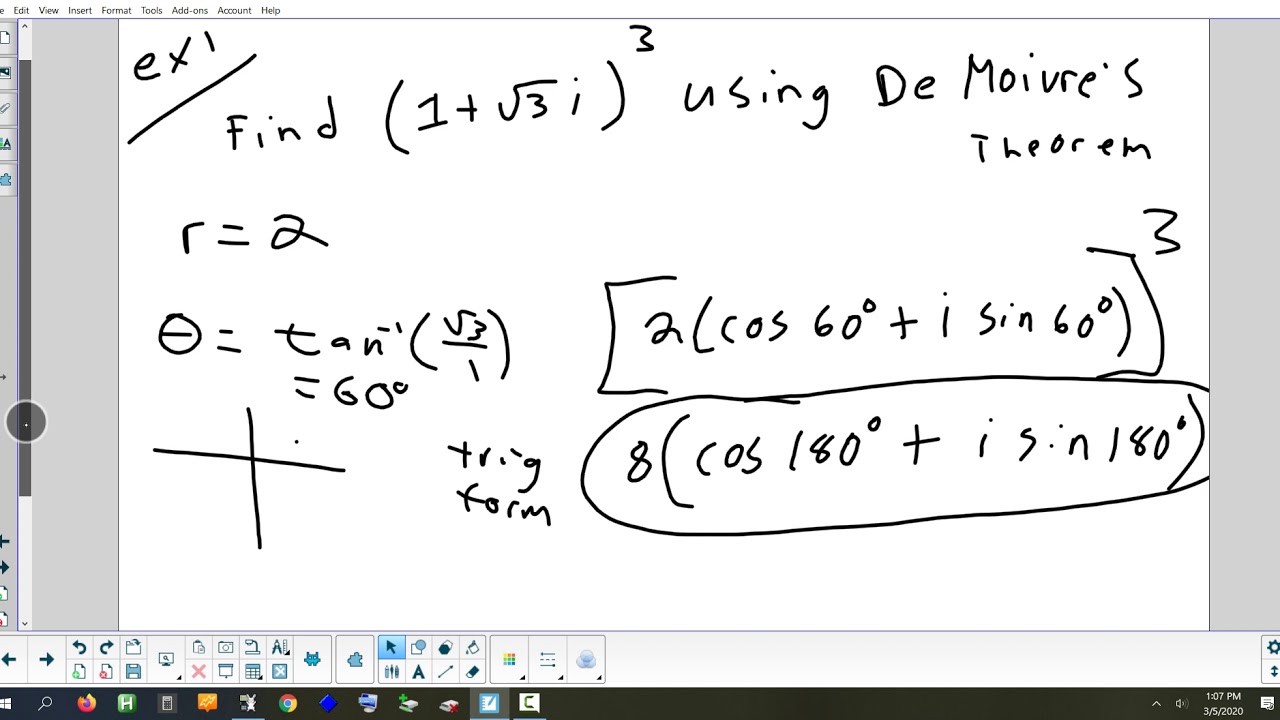 Edit View Insert Format Tools Add-ons Account Help
ex1
Find (1+√3 i)³ using De Moivre's
Theorem
r = 2
θ = tan⁻¹(√3/1)
= 60°
[2(cos 60° + i sin 60°)]³
trig
form
8(cos 180° + i sin 180°)
1:07 PM
3/5/2020